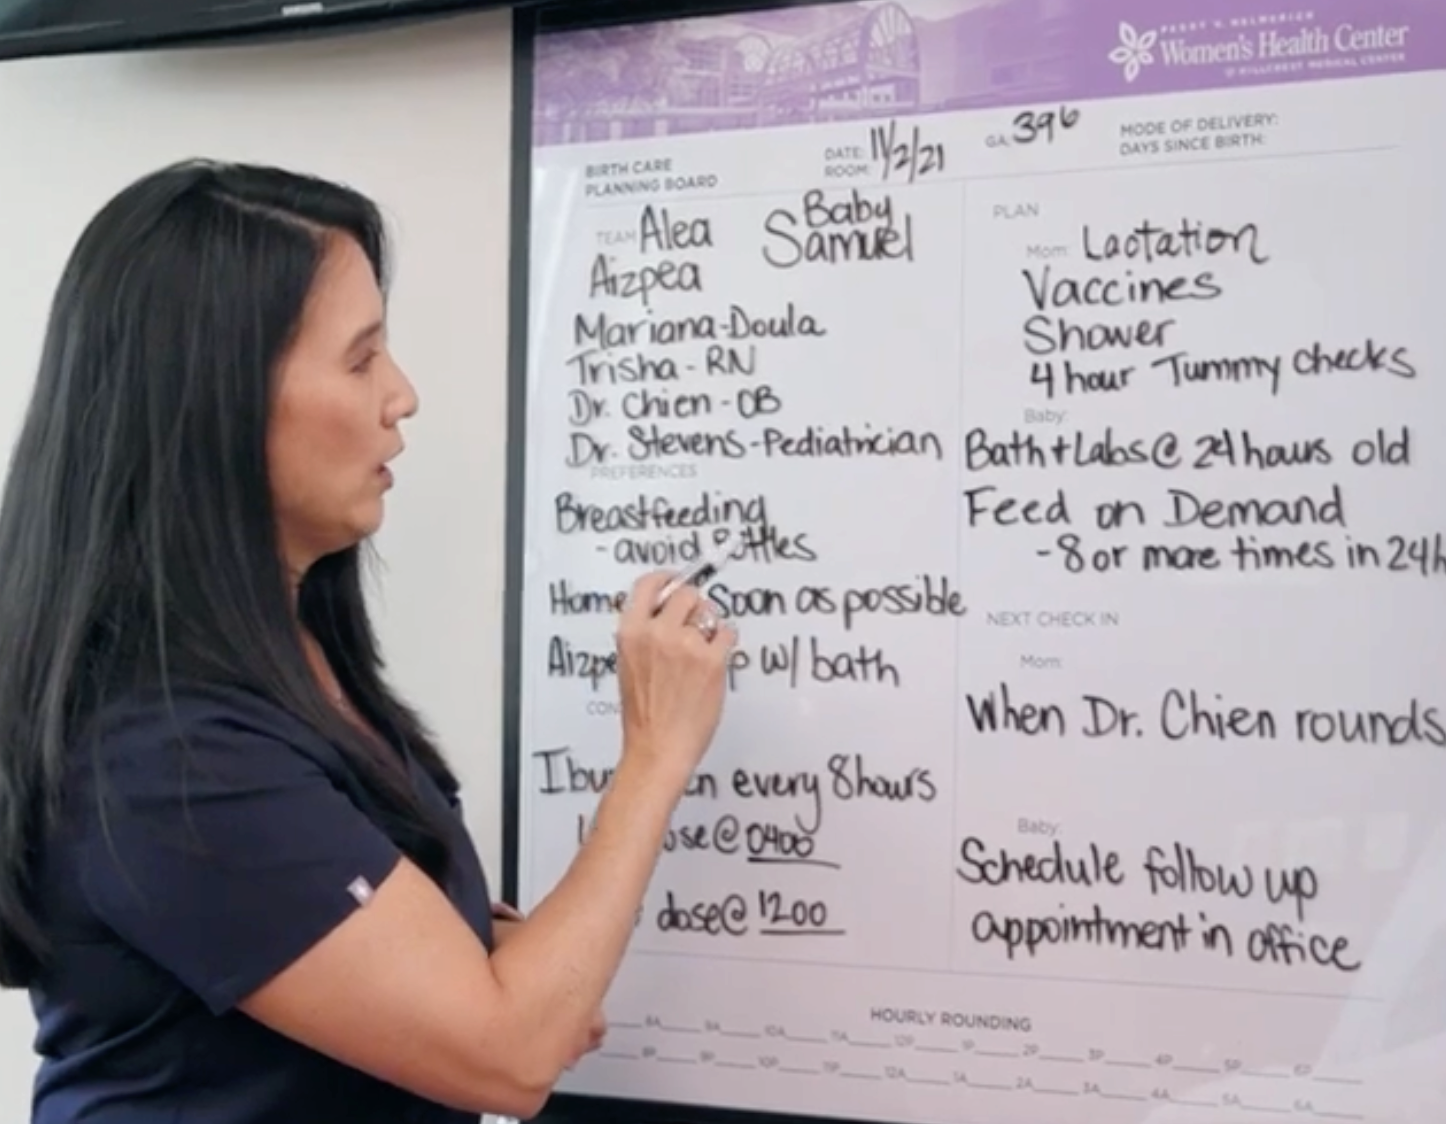 PEGGY V. HELMERICH
Women's Health Center
@ HILLCREST MEDICAL CENTER
BIRTH CARE
PLANNING BOARD
DATE: 11/2/21
ROOM:
GA: 39 6
MODE OF DELIVERY:
DAYS SINCE BIRTH:
TEAM Alea
Aizpea
Baby
Samuel
Mariana-Doula
Trisha - RN
Dr. Chien - OB
Dr. Stevens-Pediatrician
PREFERENCES
Breastfeeding
- avoid Bottles
Home soon as possible
w/ bath
every 8 hours
@ 0400
dose @ 1200
PLAN
Mom: Lactation
Vaccines
Shower
4 hour Tummy checks
Baby:
Bath + Labs @ 24 hours old
Feed on Demand
- 8 or more times in 24h
NEXT CHECK IN
Mom:
When Dr. Chien rounds
Baby:
Schedule follow up
appointment in office
HOURLY ROUNDING
8A 9A 10A 11A 12P 1P 2P 3P 4P 5P 6P
8P 9P 10P 11P 12A 1A 2A 3A 4A 5A 6A